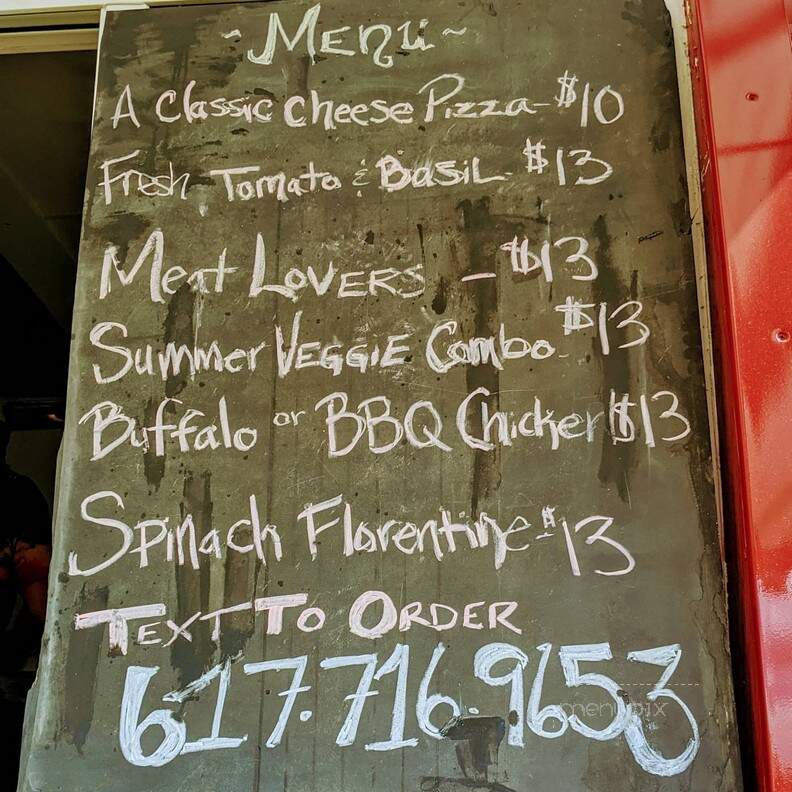 ~ Menu ~
A Classic Cheese Pizza - $10
Fresh Tomato & Basil - $13
Meat Lovers - $13
Summer Veggie Combo - $13
Buffalo or BBQ Chicken $13
Spinach Florentine $13
Text To Order
617.716.9653
menupix